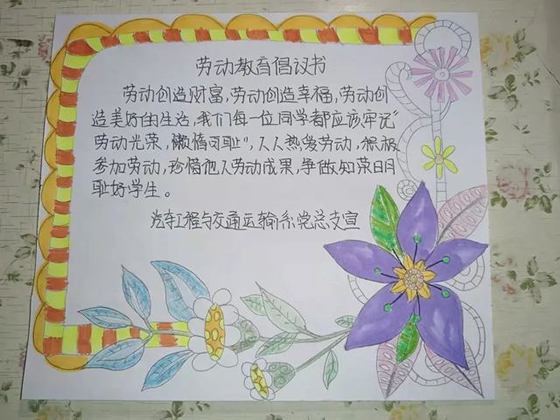 劳动教育倡议书
劳动创造财富,劳动创造幸福,劳动创
造美好的生活,我们每一位同学都应该牢记"
劳动光荣,懒惰可耻",人人热爱劳动,积极
参加劳动,珍惜他人劳动成果,争做知荣明
耻好学生。
汽车工程与交通运输系党总支宣